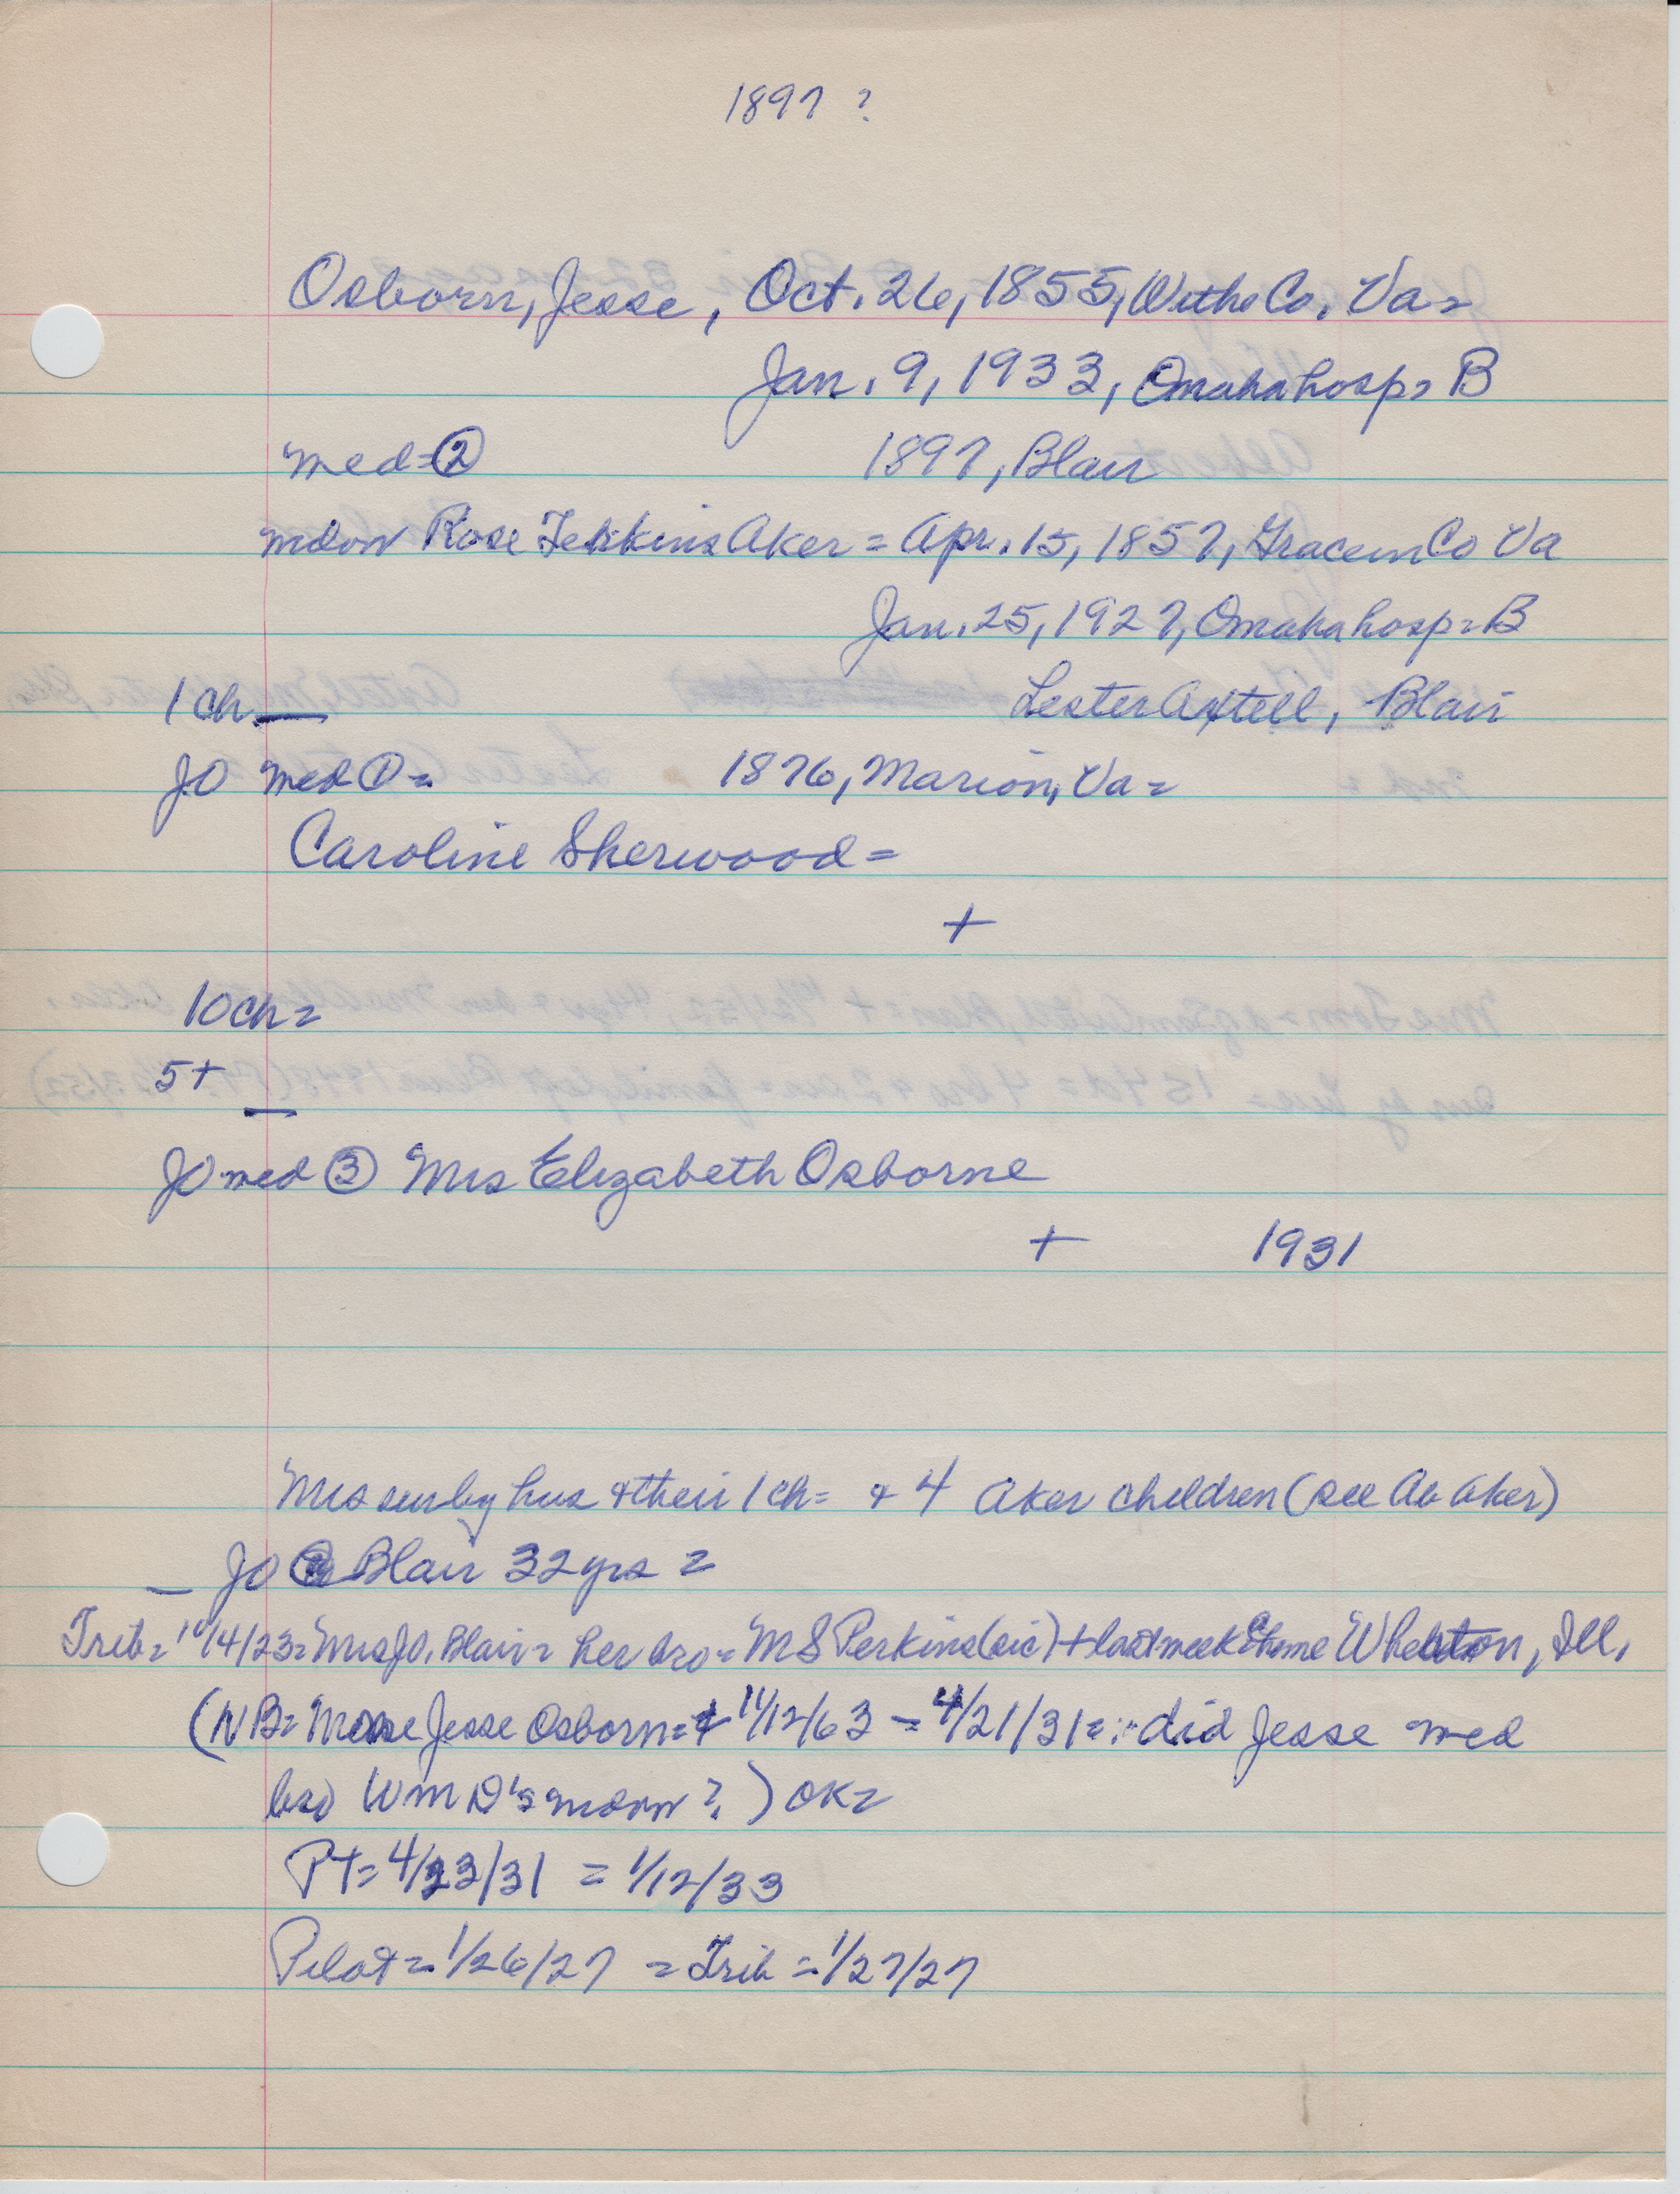 1897 ?
Osborn, Jesse, Oct. 26, 1855, Wythe Co. Va =
Jan. 9, 1933, Omaha hosp = B
med = ② 1897, Blair
widow Rose Aker = Apr. 15, 1857, Co Va
Jan. 25, 1927, Omaha hosp = B
1 ch — Lester Axtell, Blair
JO med ① = 1876, Marion, Va =
Caroline Sherwood =
+
10 ch =
5 +
—
JO med ③ Mrs Elizabeth Osborne
+ 1931
Mrs sur by hus & their 1 ch = & 4 Aker children (see Ab Aker)
— JO Blair 32 yrs =
Trib = 10/4/23 = Mrs JO, Blair = her bro = M S Perkins (sic) + last week @ home Wheaton, Ill,
(NB = Jesse Osborn = 11/12/63 – 4/21/31 = did Jesse med
bro Wm D's widow ?) OK =
PT = 4/23/31 = 1/12/33
Pilot = 1/26/27 = Trib = 1/27/27